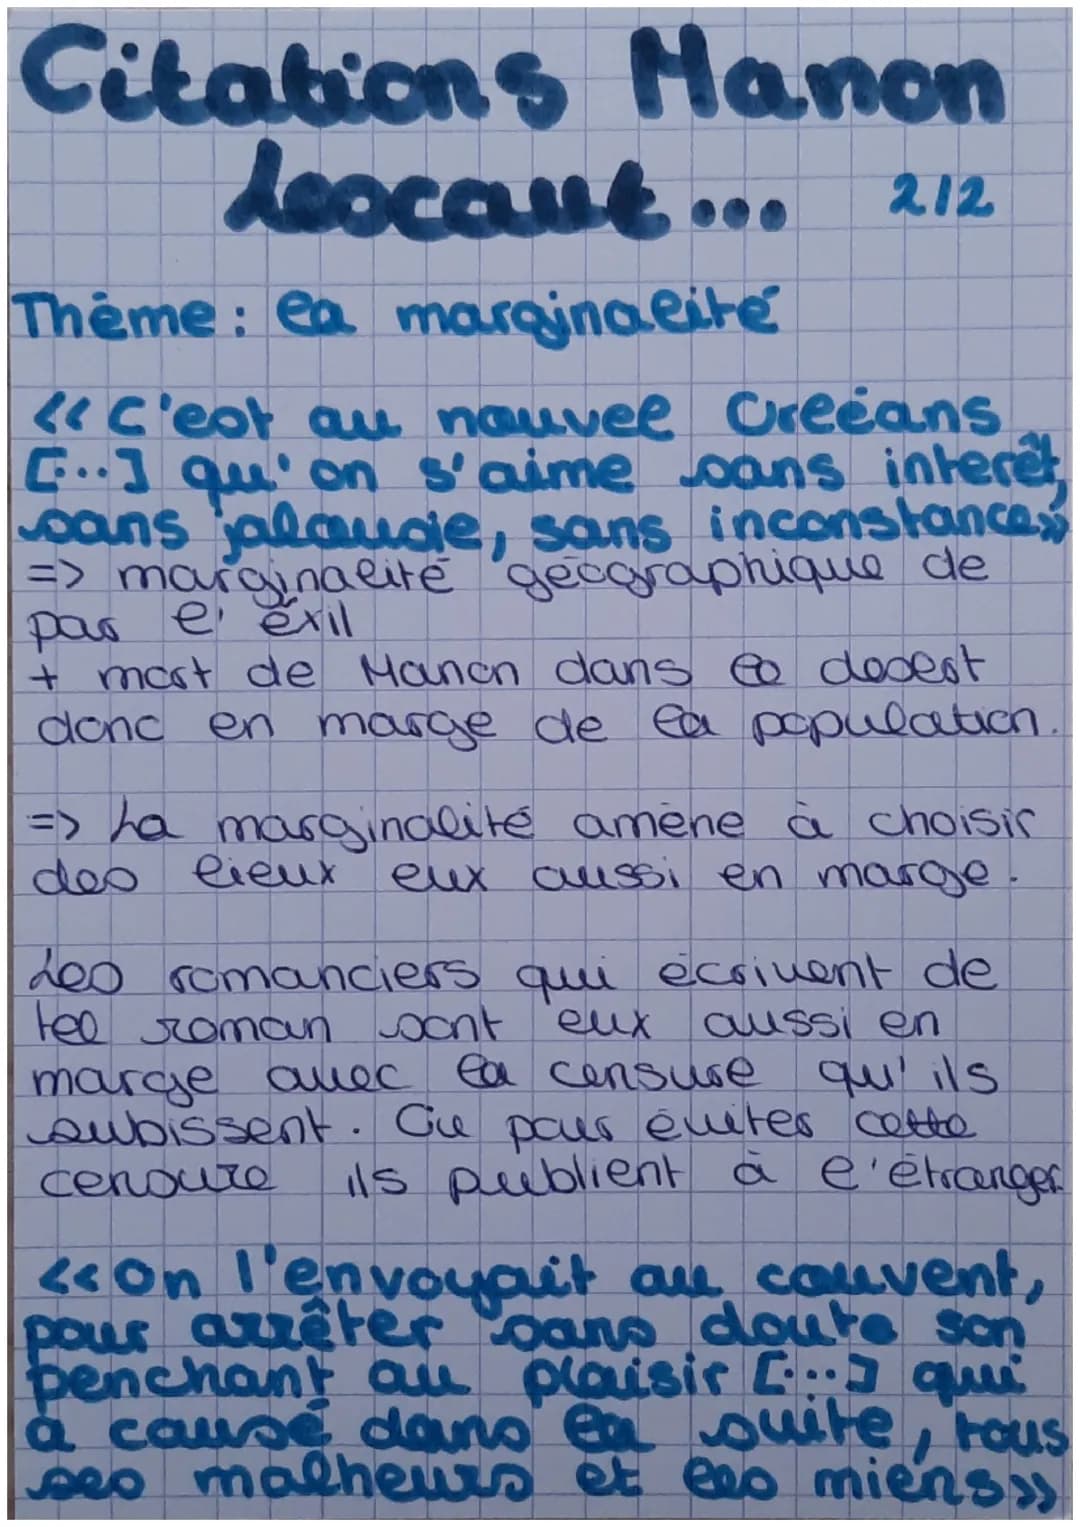 Citations Manon
Lescaut... 2/2
Thème : la marginalité
<<C'est au nouvel Orléans
[...] qu'on s'aime sans interêt,
sans jalousie, sans inconstance>>
=> marginalité géographique de
par l'éxil
+ mort de Manon dans le desert
donc en marge de la population.
=> La marginalité amène à choisir
des lieux eux aussi en marge.
Les romanciers qui écrivent de
tel roman sont eux aussi en
marge avec la censure qu'ils
subissent. Ou pour éviter cette
censure ils publient à l'étranger
<<On l'envoyait au couvent,
pour arrêter sans doute son
penchant au plaisir [...] qui
à causé dans la suite, tous
ses malheurs et les miens>>